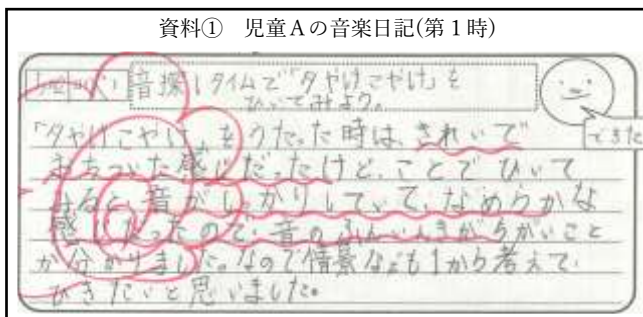 資料① 児童Aの音楽日記(第1時)
音探しタイムで「夕やけこやけ」を
ひいてみよう。
できた
「夕やけこやけ」をうたった時は、きれいで
おちついた感じだったけど、ことでひいて
みると、音がしっかりしていて、なめらかな
感じだったので、音のふんいきがちがいこと
が分かりました。なので情景なども1から考えて
ひきたいと思いました。